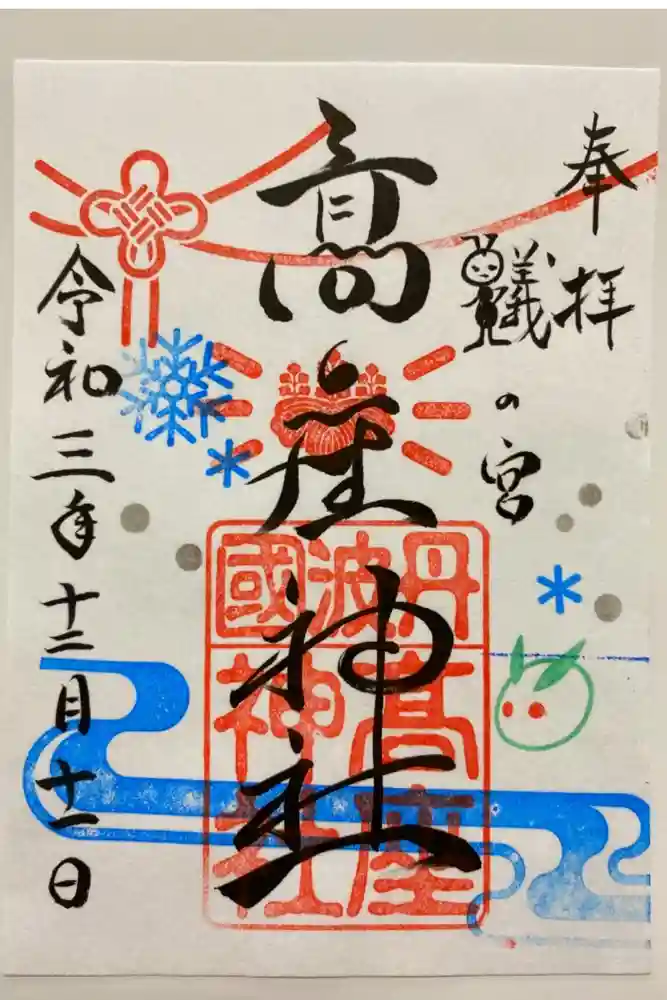 奉拝
蟻の宮
髙座神社
令和三年十二月十一日
丹波國
髙座
神社